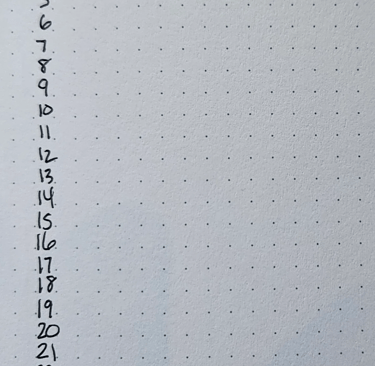 6
7
8
9
10
11
12
13
14
15
16
17
18
19
20
21